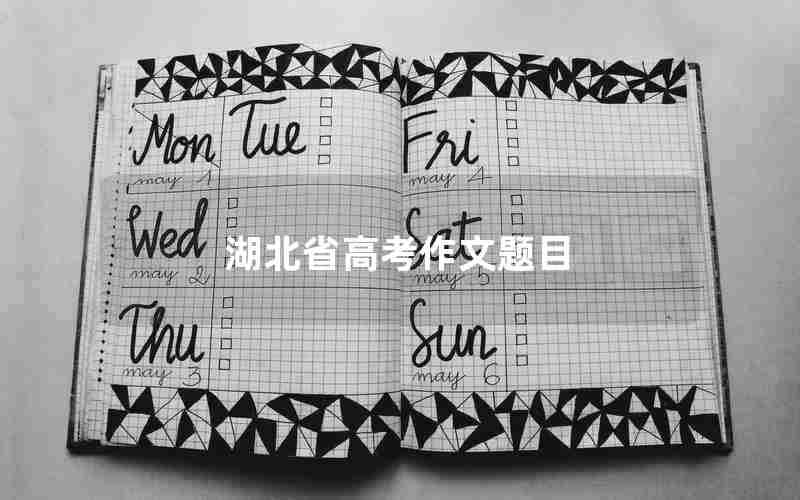 Mon Tue
may 1
Wed
may 2
Thu
may 3
Fri
may 4
Sat
may 5
Sun
may 6
湖北省高考作文题目